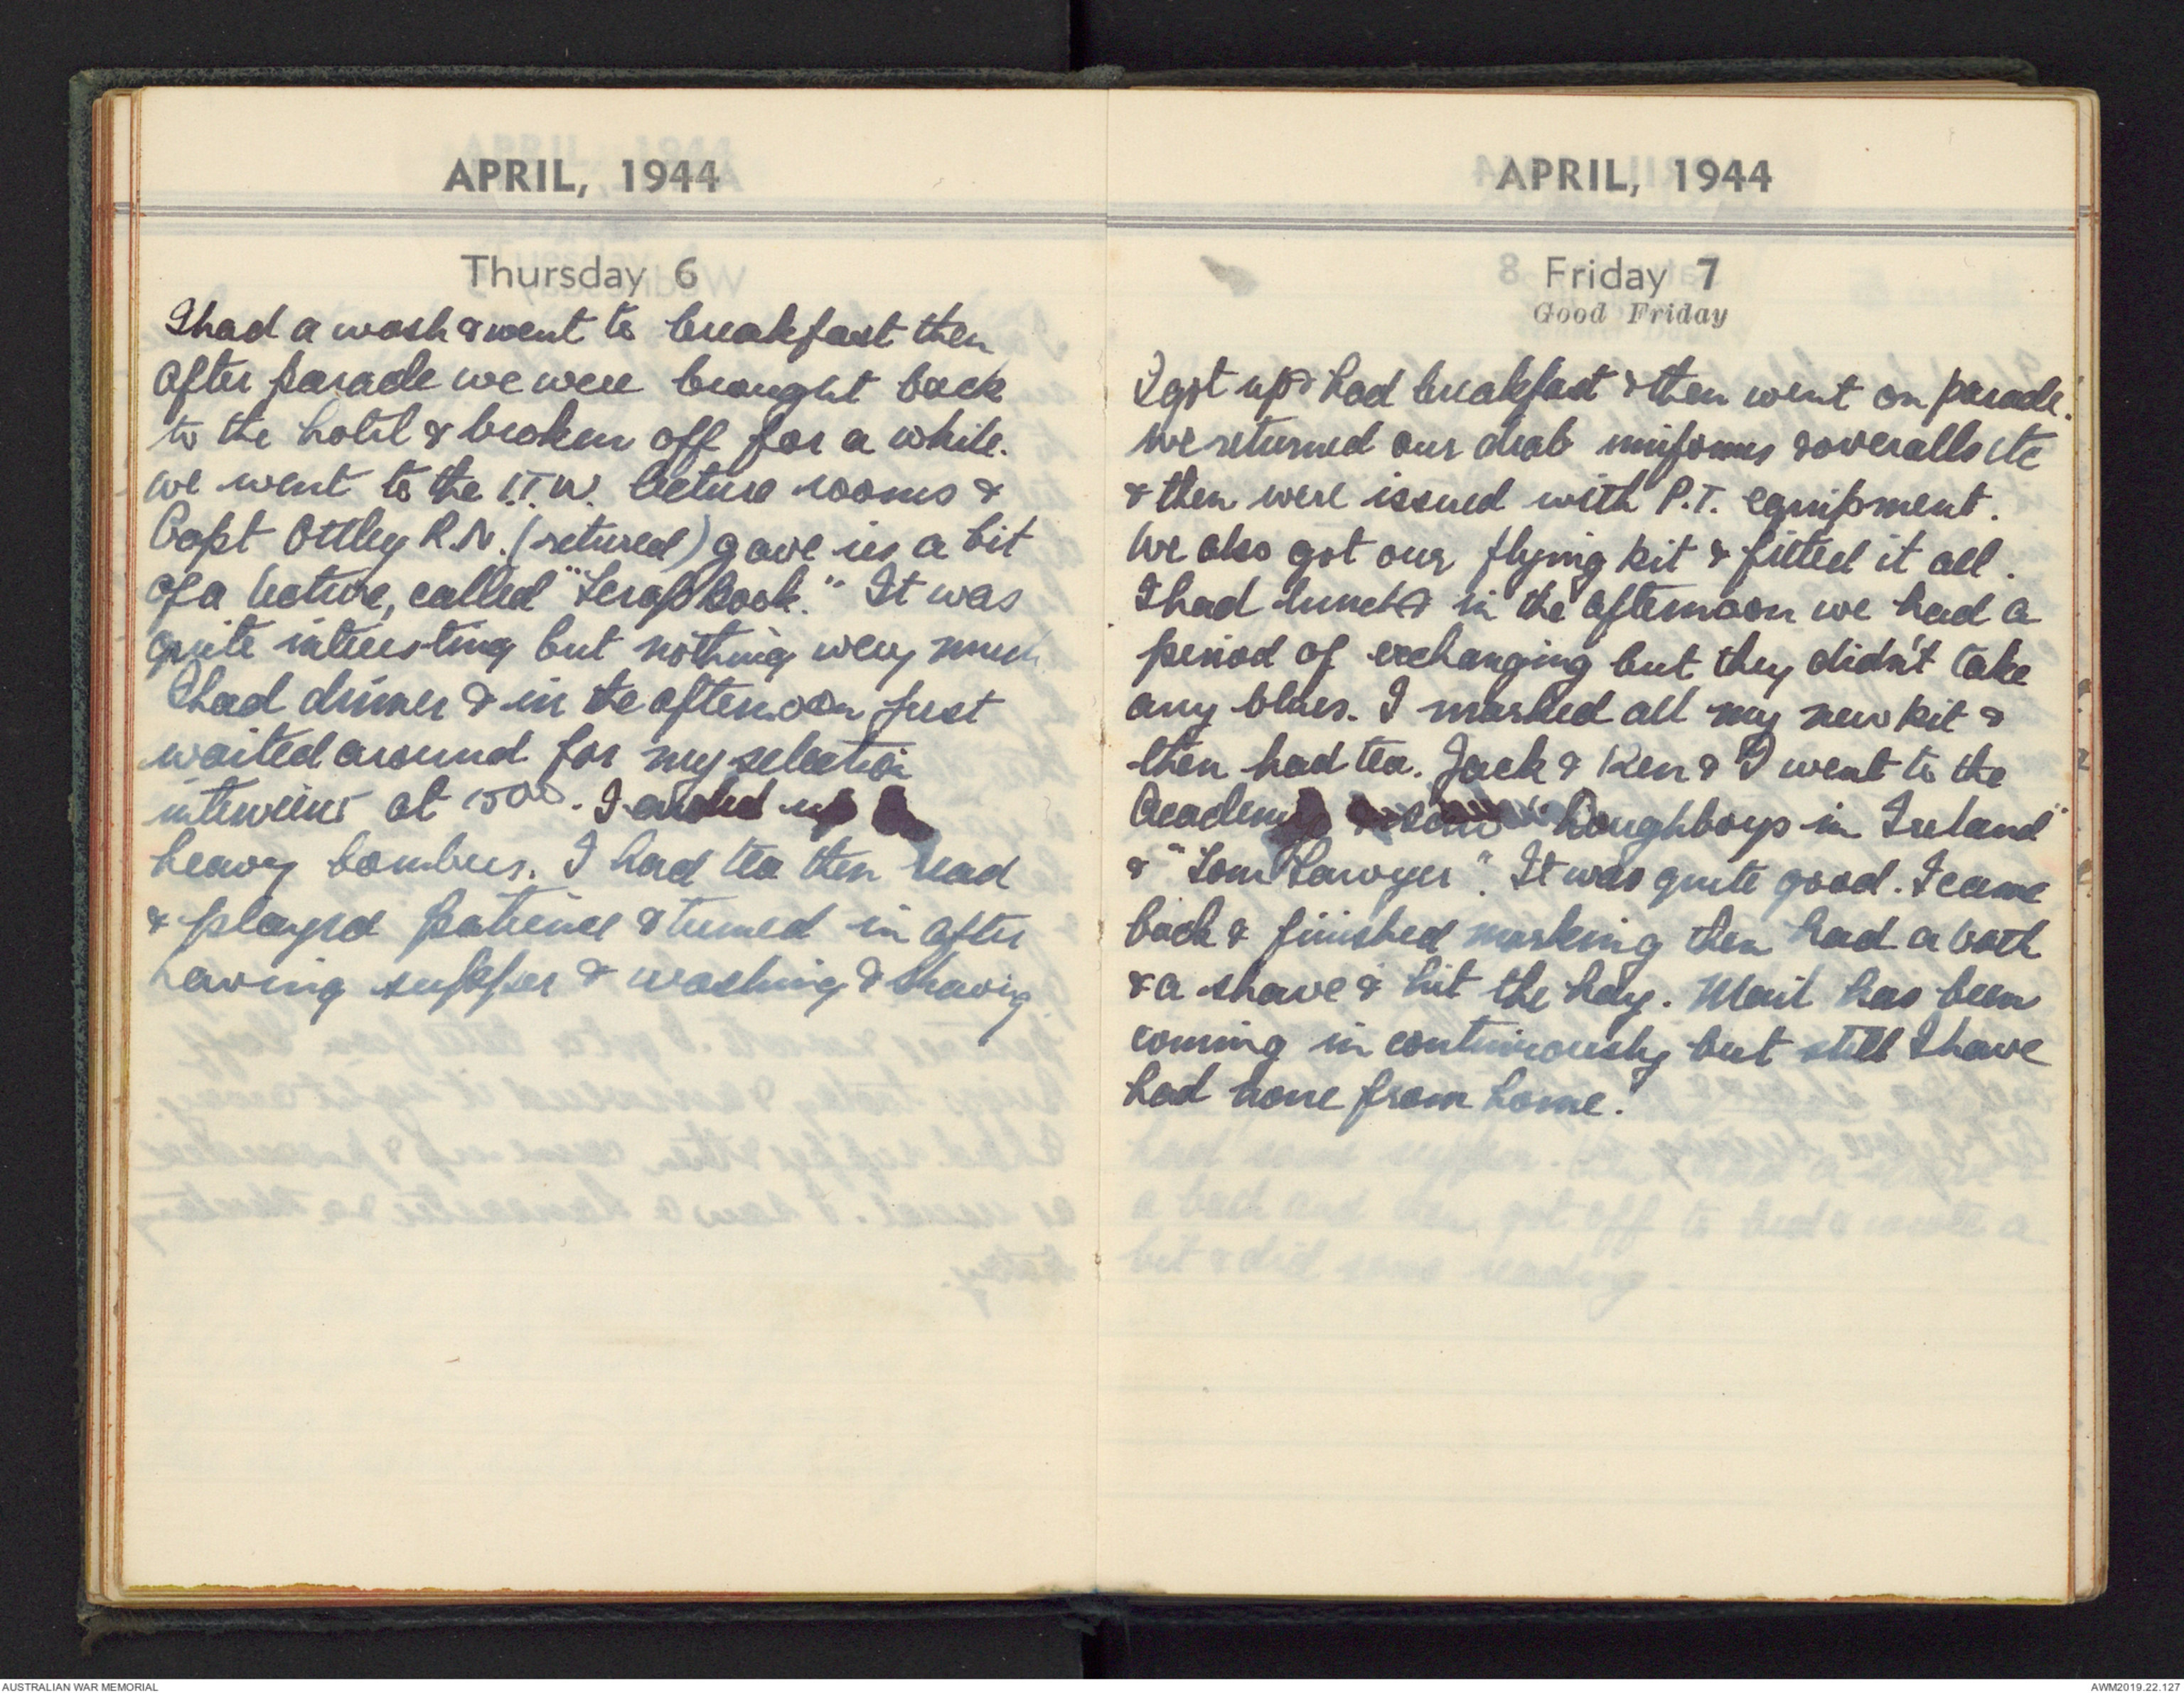 APRIL, 1944
Thursday 6
I had a wash & went to breakfast then
after parade we were brought back
to the hotel & broken off for a while.
we went to the I.T.W. lecture rooms &
Capt Ottley R.N. (retired) gave us a bit
of a lecture, called "Scrapbook." It was
quite interesting but nothing very much
I had dinner & in the afternoon just
waited around for my selection
interview at 1500. I ended up
heavy bombers. I had tea then read
& played patience & turned in after
having supper & washing & shaving
APRIL, 1944
Friday 7
Good Friday
I got up & had breakfast & then went on parade.
We returned our drab uniforms & overalls etc
& then were issued with P.T. equipment.
We also got our flying kit & fitted it all.
I had lunch & in the afternoon we had a
period of exchanging but they didn't take
any blues. I marked all my new kit &
then had tea. Jack & Ken & I went to the
Academy & saw "Doughboys in Ireland"
& "Tom Sawyer". It was quite good. I came
back & finished marking then had a bath
& a shave & hit the hay. Mail has been
coming in continuously but still I have
had none from home.
AUSTRALIAN WAR MEMORIAL
AWM2019.22.127